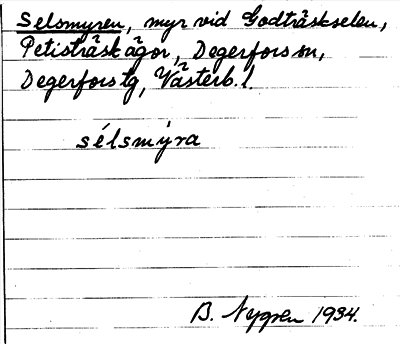 Selsmyren, myr vid Godträskselen,
Petisträsk ägor, Degerfors sn,
Degerfors tg, Västerb. l.
sélsmýra
B. Nygren 1934.